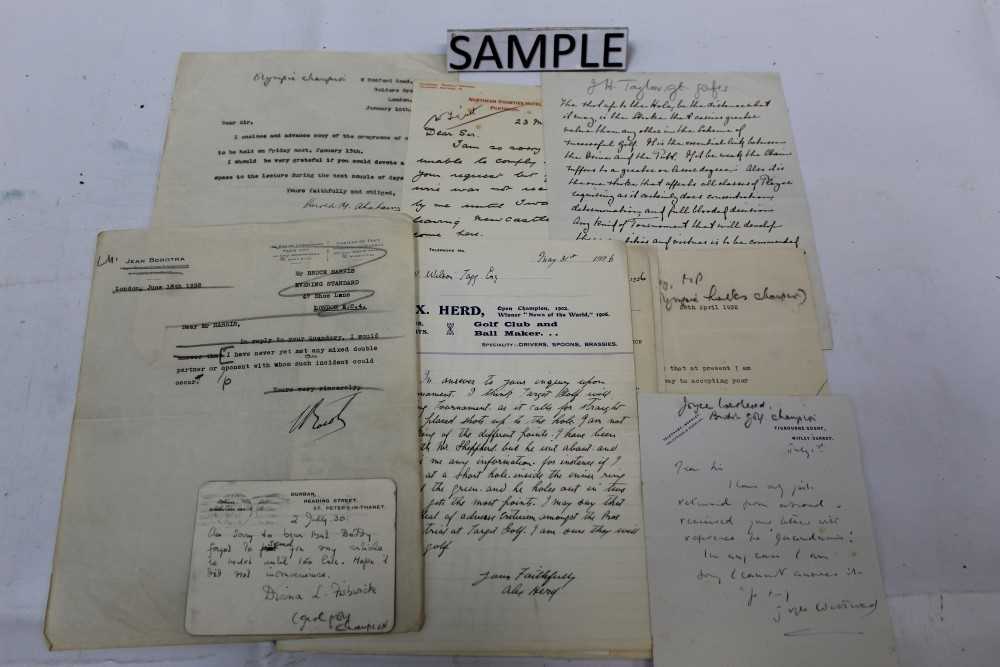 SAMPLE
Olympic Champion
London,
January 10th.
Dear Sir,
I enclose and advance copy of the programme of
to be held on Friday next, January 13th.
I should be very grateful if you would devote a
space to the lecture during the next couple of days
Yours faithfully and obliged,
Harold M. Abrahams
NORTHERN COUNTIES HOTEL
PORTRUSH.
23 M
Dear Sir.
I am so sorry
unable to comply
your request but
was not
by me until I was
leaving Newcastle
come here.
J H Taylor golf
The shot up to the Hole, be the distance what
it may, is the Stroke that assumes greater
value than any other in the scheme of
successful Golf. It is the essential link between
the Drive and the Putt. If it be weak the Chain
suffers to a greater or lesser degree. Also it is
the one stroke that affects all classes of Player
requiring as it certainly does concentration
determination and full blooded decision
Any kind of Tournament that will develop
to be commended
JEAN BOROTRA
London, June 18th
Mr BRUCE HARRIS
EVENING STANDARD
47 Shoe Lane
LONDON E.C.4.
Dear Mr HARRIS,
In reply to your Quandary, I would
answer that I have never yet met any mixed double
partner or oponent with whom such incident could
occur.
Yours very sincerely,
TELEPHONE No.
May 31st 1926
Wilson Tagg. Esq
X. HERD,
Open Champion, 1902.
Winner "News of the World," 1906.
Golf Club and
Ball Maker...
SPECIALITY:- DRIVERS, SPOONS, BRASSIES.
In answer to your inquiry upon
I think Target Golf will
Tournament. as it calls for straight
placed shots up to the hole. I am not
of the different points. I have been
Mr Sheppherd. but he is out about and
me any information. for instance if I
at a short hole. inside the inner ring
the green. and he holes out in two
gets the most points. I may say that
of adverse criticism amongst the Pros
trial at Target Golf. I am sure they will
golf
Yours Faithfully
Alex Herd
MP
(Olympic hurdles champion)
April 1932
that at present I am
way to accepting your
DURBAN,
READING STREET,
ST. PETER'S-IN-THANET.
2 July 30.
Am sorry to hear but Daddy
forgot to send you my article
to until too late. Hope it
did not inconvenience.
Diana L. Fishwick
(golf
Champion
Joyce Wethered.
British Golf Champion
TIGBOURNE COURT,
WITLEY SURREY.
Dear Sir
I have only just
returned from abroad &
received your letter with
reference to 'Quandaries'.
In any case I am
sorry I cannot answer it
Joyce Wethered